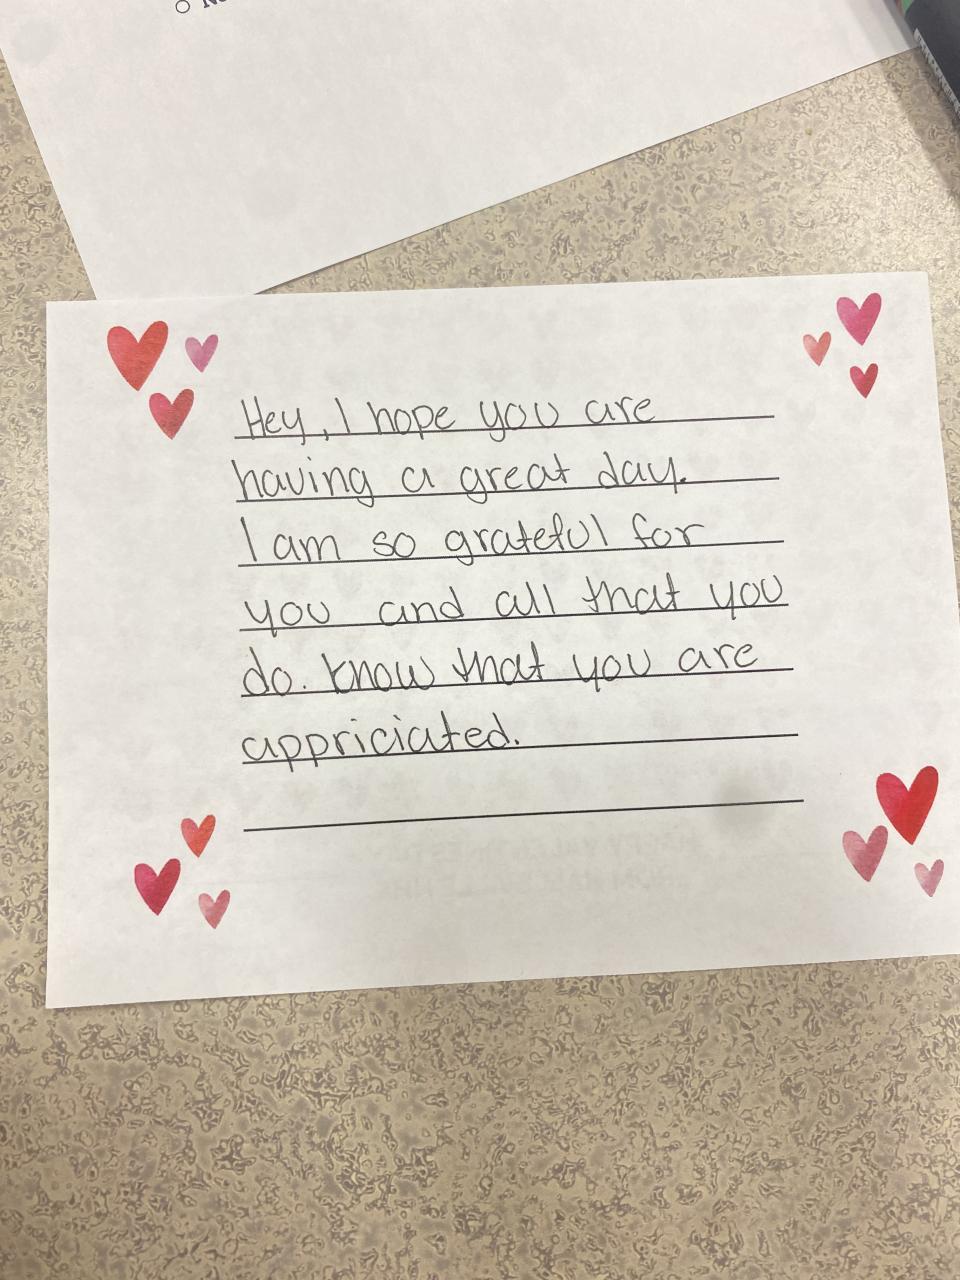 Hey, I hope you are
having a great day.
I am so grateful for
you and all that you
do. know that you are
appriciated.